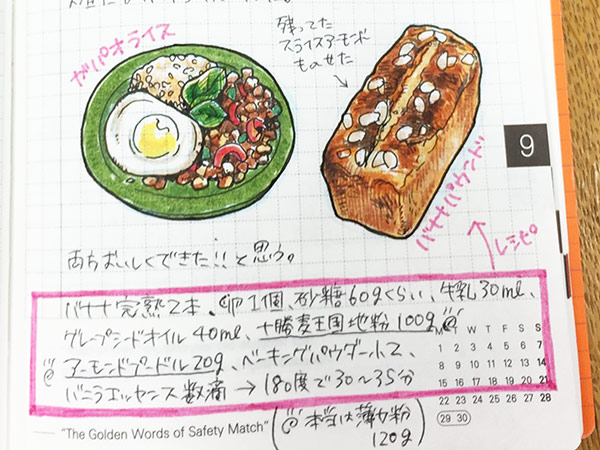 残ってた
スライスアーモンド
ものせた
ガパオライス
バナナパウンド
9
レシピ
両方おいしくできた!!と思う。
バナナ完熟2本、卵1個、砂糖60gくらい、牛乳30ml、
グレープシードオイル40ml、十勝麦王国地粉100g、
アーモンドプードル20g、ベーキングパウダー小2、
バニラエッセンス数滴 → 180度で30~35分
(本当は薄力粉
120g)
M T W T F S S
1 2 3 4 5 6 7
8 9 10 11 12 13 14
15 16 17 18 19 20 21
22 23 24 25 26 27 28
29 30
"The Golden Words of Safety Match"